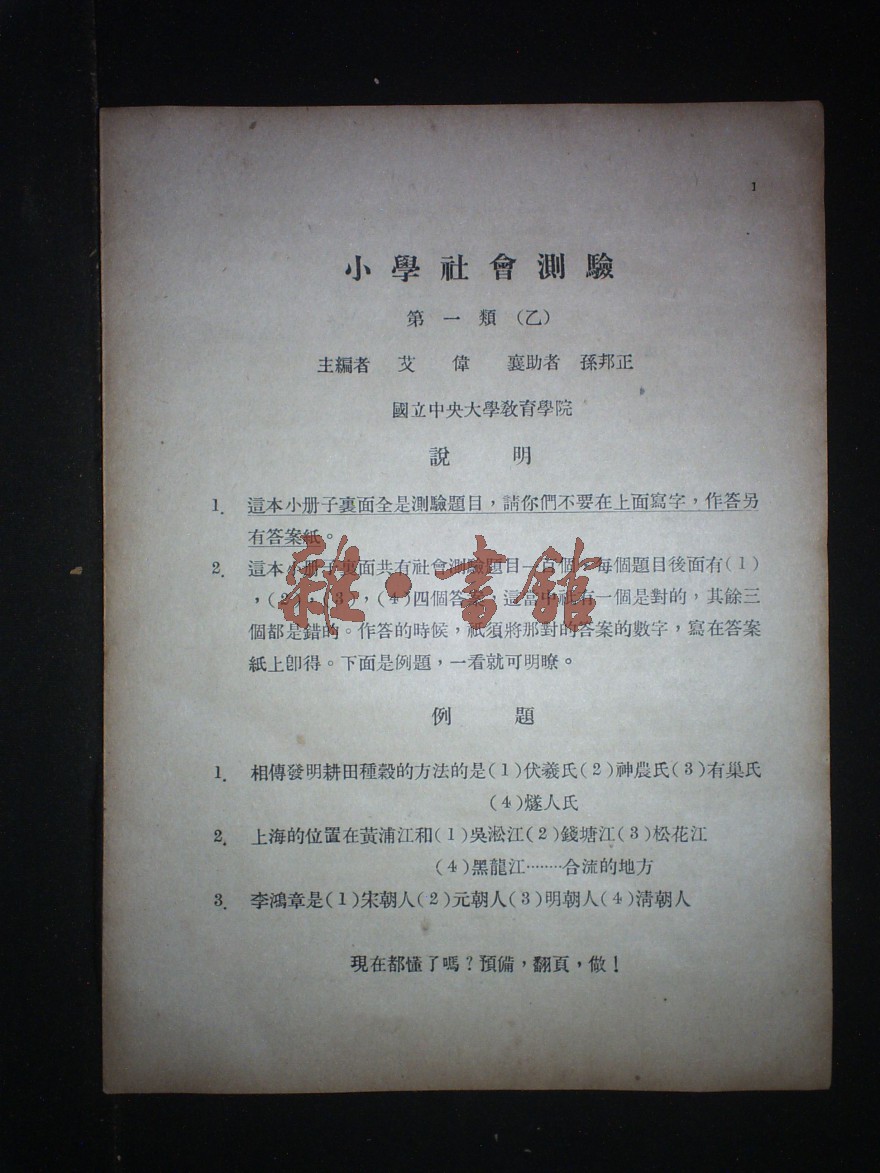 1
小學社會測驗
第一類(乙)
主編者 艾偉 襄助者 孫邦正
國立中央大學敎育學院
說明
1. 這本小册子裏面全是測驗題目，請你們不要在上面寫字，作答另
有答案紙。
2. 這本小册子裏面共有社會測驗題目一百個，每個題目後面有(1)
，(2)，(3)，(4)四個答案，這當中祇有一個是對的，其餘三
個都是錯的。作答的時候，祇須將那對的答案的數字，寫在答案
紙上卽得。下面是例題，一看就可明瞭。
雜·書館
例題
1. 相傳發明耕田種穀的方法的是(1)伏羲氏(2)神農氏(3)有巢氏
(4)燧人氏
2. 上海的位置在黃浦江和(1)吳淞江(2)錢塘江(3)松花江
(4)黑龍江………合流的地方
3. 李鴻章是(1)宋朝人(2)元朝人(3)明朝人(4)清朝人
現在都懂了嗎？預備，翻頁，做！